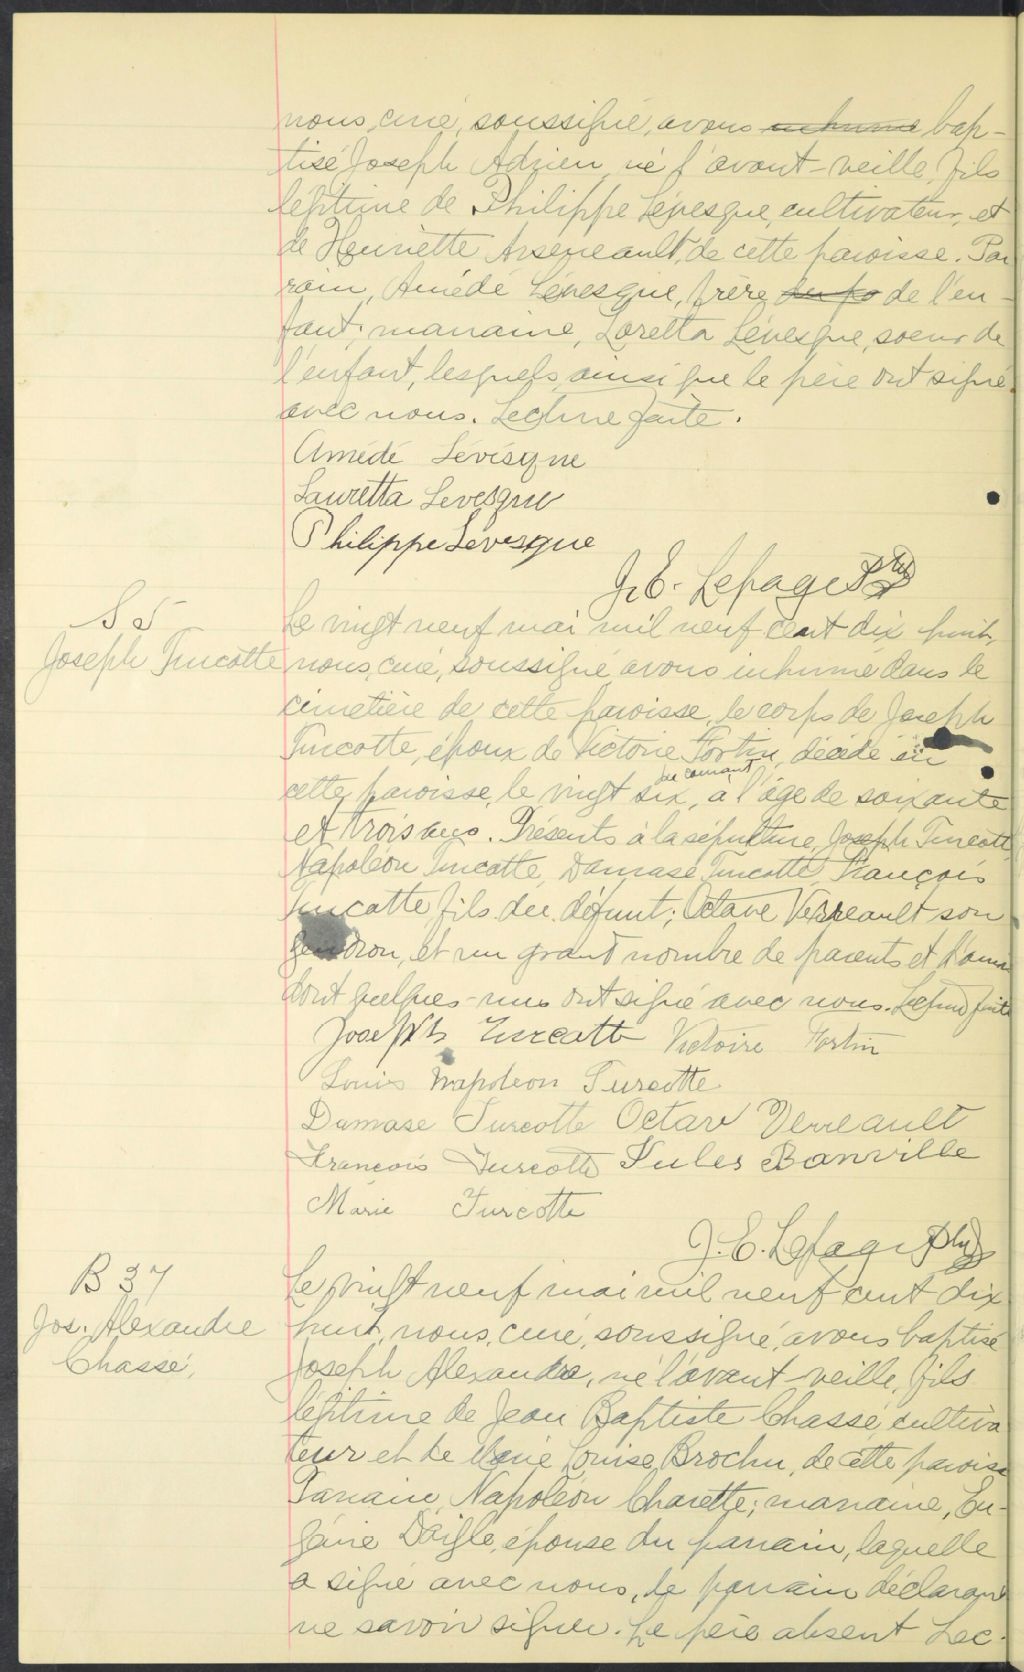 nous, curé, soussigné, avons inhumé bap-
tisé Joseph Adrien, né l'avant-veille, fils
légitime de Philippe Lévesque, cultivateur, et
de Henriette Arseneault, de cette paroisse. Par
rain, Amédé Lévesque, frère de l'en-
fant; marraine, Loretta Lévesque, soeur de
l'enfant, lesquels, ainsi que le père ont signé
avec nous. Lecture faite.
Amédé Lévésque
Lauretta Levesque
Philippe Levesque
J. E. Lepage Ptre
S 5
Joseph Turcotte
Le vingt neuf mai mil neuf cent dix huit,
nous, curé, soussigné, avons inhumé dans le
cimetière de cette paroisse, le corps de Joseph
Turcotte, époux de Victoire Fortin, décédé en
du courant
cette paroisse, le vingt six, à l'âge de soixante
et trois ans. Présents à la sépulture, Joseph Turcotte,
Napoléon Turcotte, Damase Turcotte, François
Turcotte fils du défunt; Octave Verreault son
gendron, et un grand nombre de parents et d'amis
dont quelques-uns ont signé avec nous. Lecture faite
Joseph Turcotte Victoire Fortin
Louis Napoleon Turcotte
Damase Turcotte Octave Verreault
Francois Turcotte Jules Banville
Marie Turcotte
J. E. Lepage Ptre
B 37
Jos. Alexandre
Chassé,
Le vingt neuf mai mil neuf cent dix
huit, nous, curé, soussigné, avons baptisé
Joseph Alexandre, né l'avant-veille, fils
légitime de Jean Baptiste Chassé, cultiva
teur et de Marie Louise Brochu, de cette paroisse
Parrain, Napoléon Charette; marraine, Eu-
génie Daigle, épouse du parrain, laquelle
a signé avec nous, le parrain déclarant
ne savoir signer. Le père absent Lec-